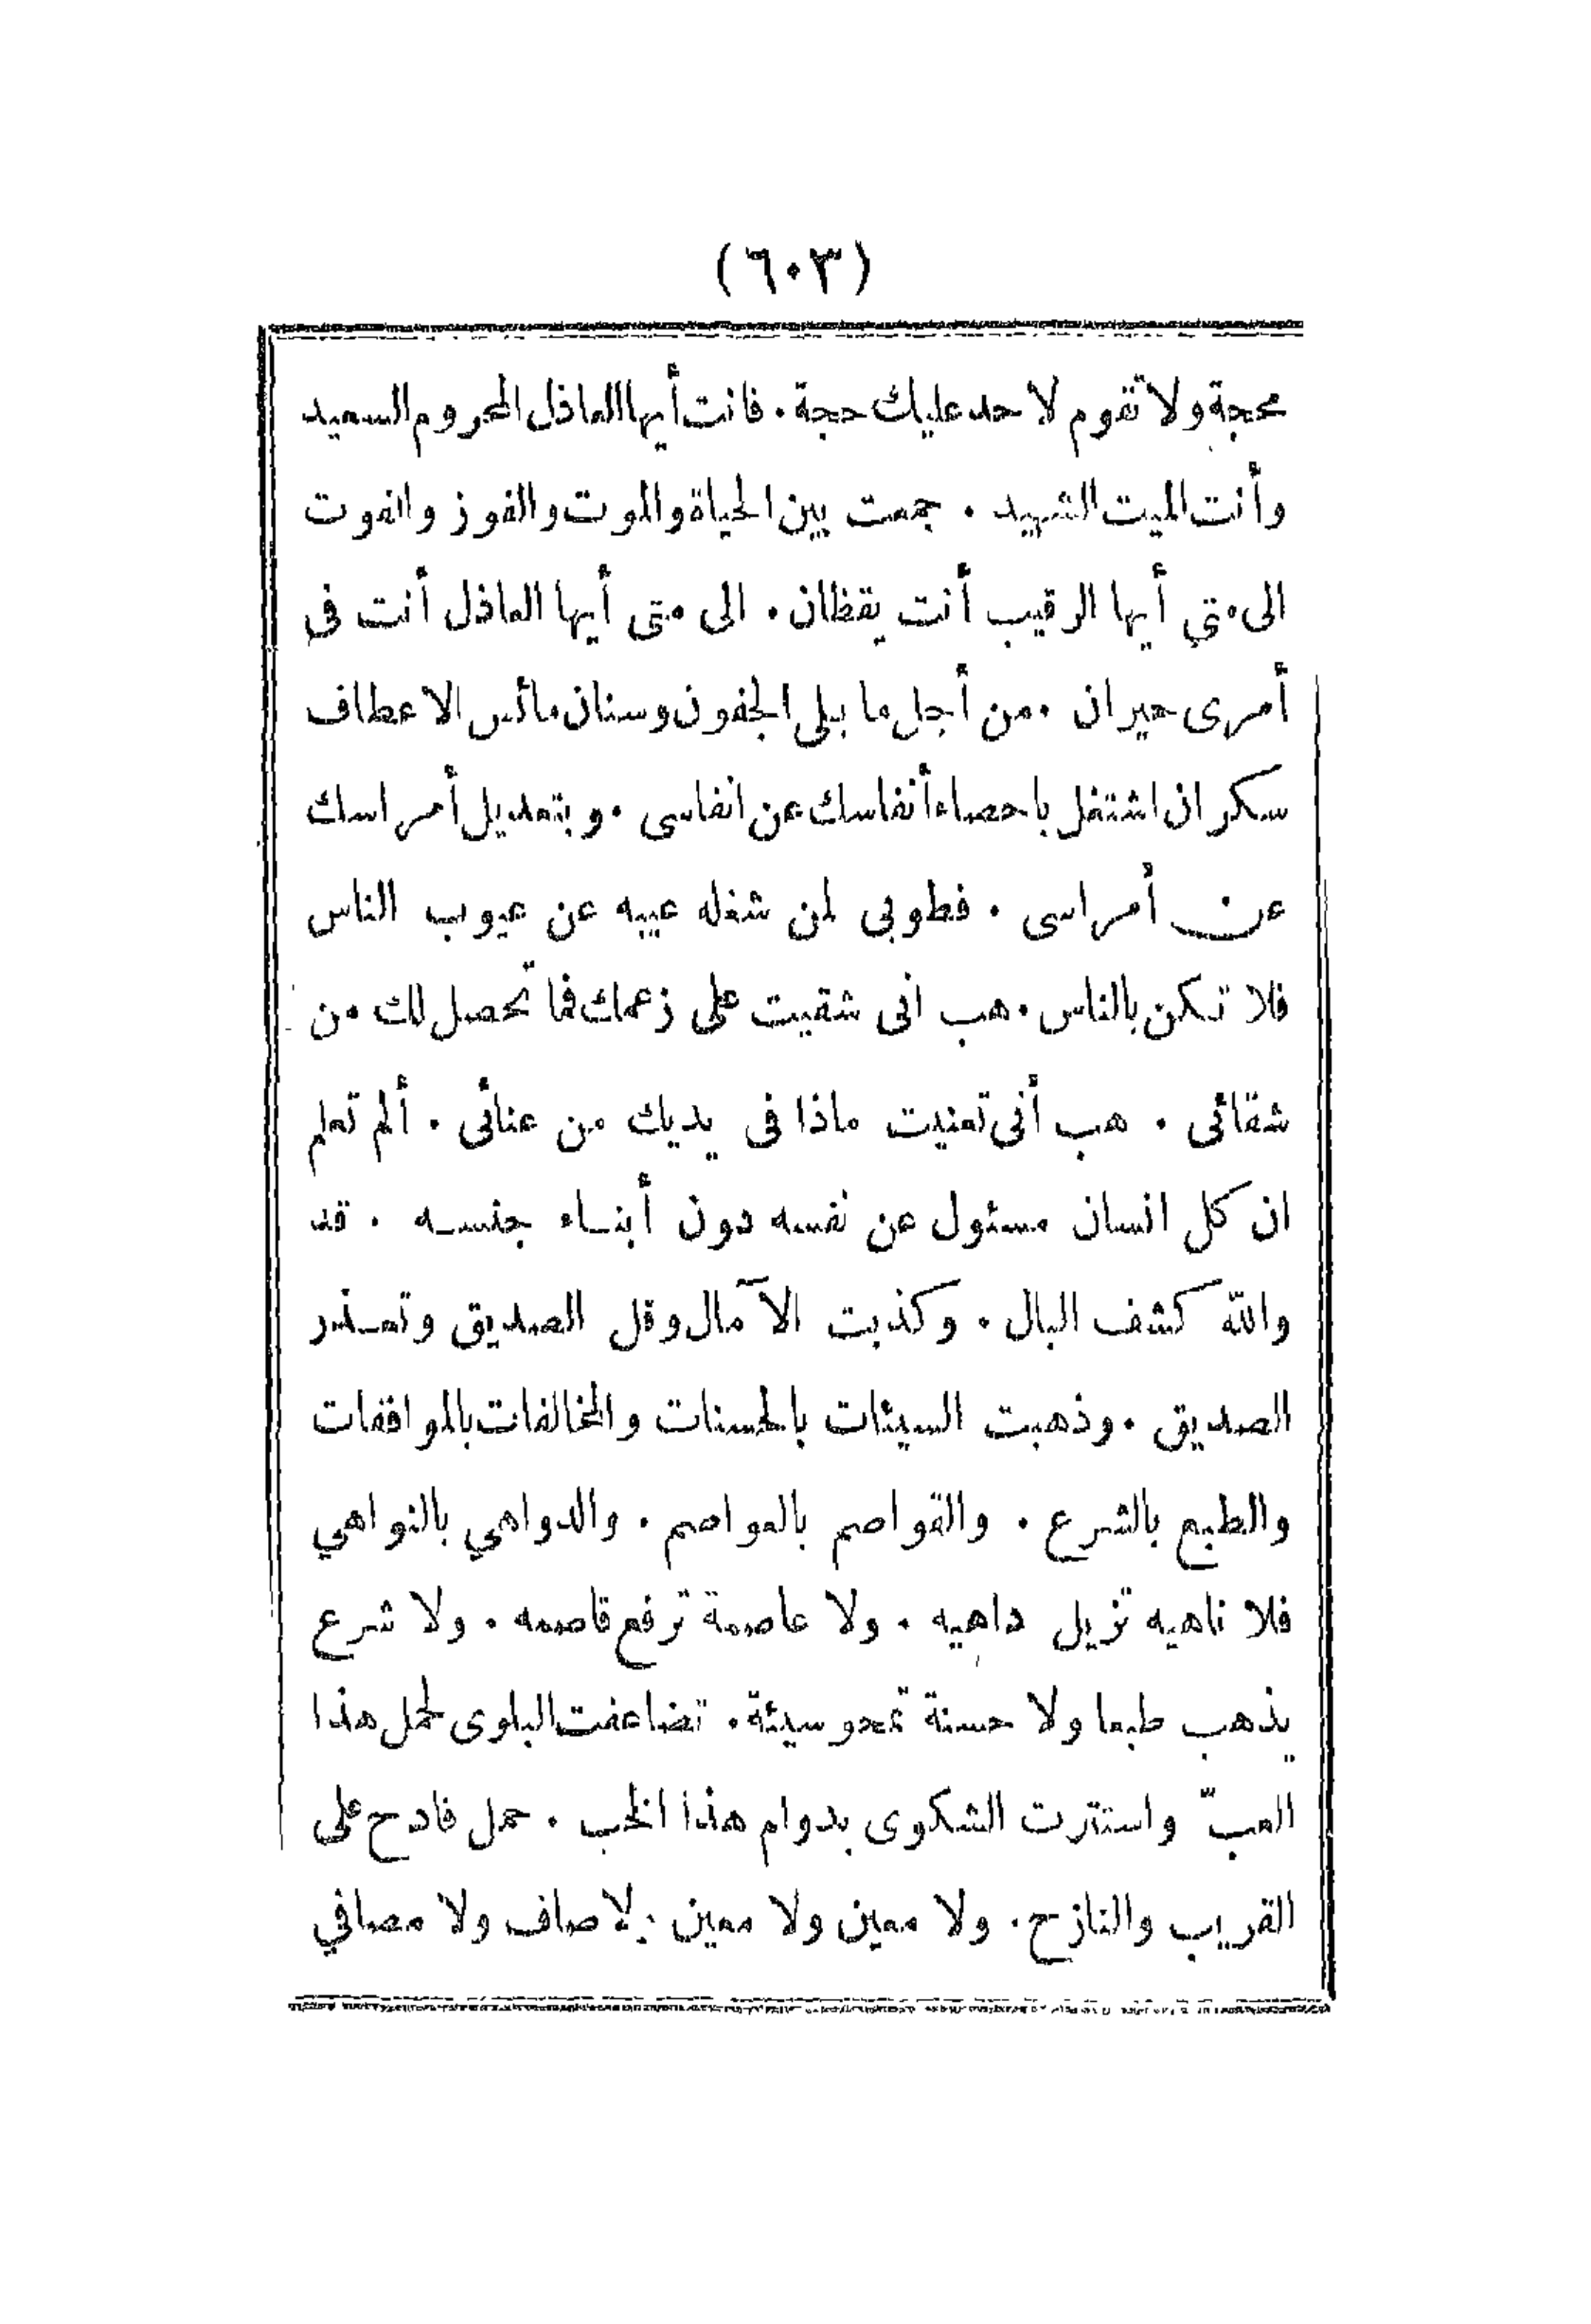 (٦٠٣)
محجة ولا تقوم لاحد عليك حجة . فانت أيها العاذل المحروم السعيد
وأنت الميت الشهيد . جمعت بين الحياة والموت والفوز والفوت
الى متى أيها الرقيب أنت يقظان . الى متى أيها العاذل أنت فى
أمرى حيران . من أجل ما بلى الجفون وسنان مائس الاعطاف
سكران اشتغل باحصاء أنفاسك عن انفاسى . وبتعديل أمراسك
عن أمراسى . فطوبى لمن شغله عيبه عن عيوب الناس
فلا تكن بالناس . هب انى شقيت على زعمك فما تحصل لك من
شقائى . هب أنى تعنيت ماذا فى يديك من عنائى . ألم تعلم
ان كل انسان مسئول عن نفسه دون أبناء جنسه . قد
والله كشف البال . وكذبت الآمال وقل الصديق وتعذر
الصديق . وذهبت السيئات بالحسنات والمخالفات بالموافقات
والطبع بالشرع . والقواصم بالعواصم . والدواهي بالنواهي
فلا ناهيه تزيل داهيه . ولا عاصمة ترفع قاصمه . ولا شرع
يذهب طبعا ولا حسنة تمحو سيئة . تضاعفت البلوى لحمل هذا
العبّ واستترت الشكوى بدوام هذا الخب . حمل فادح على
القريب والنازح . ولا معين ولا معين . لا صاف ولا مصافي